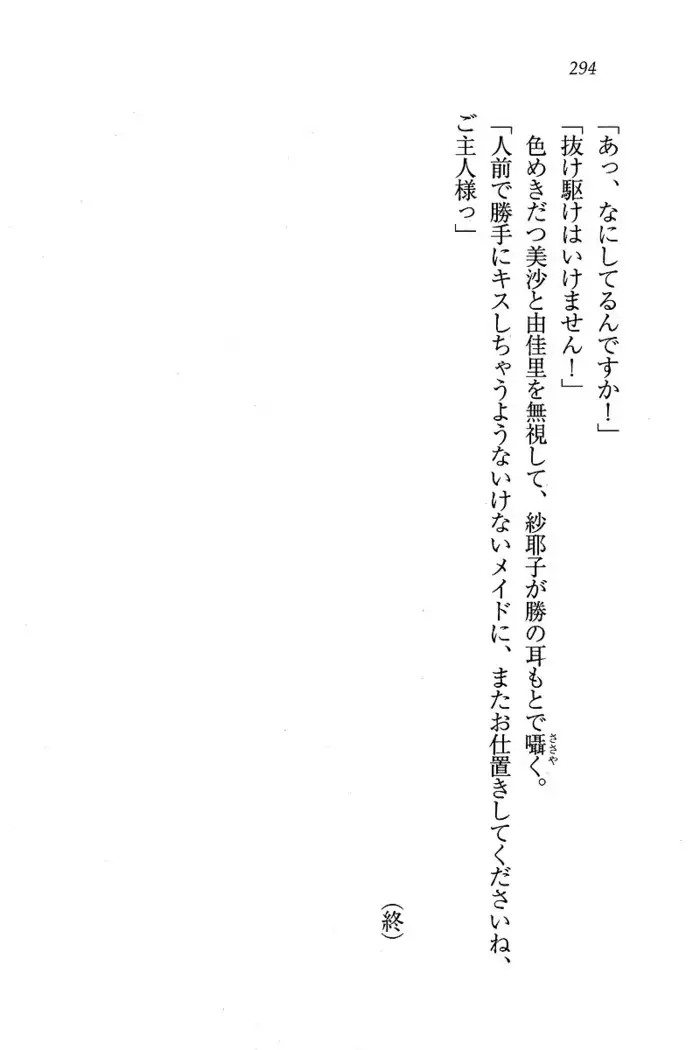 294
「あっ、なにしてるんですか！」
「抜け駆けはいけません！」
　色めきだつ美沙と由佳里を無視して、紗耶子が勝の耳もとで囁く。
ささや
「人前で勝手にキスしちゃうようないけないメイドに、またお仕置きしてくださいね、
ご主人様っ」
（終）